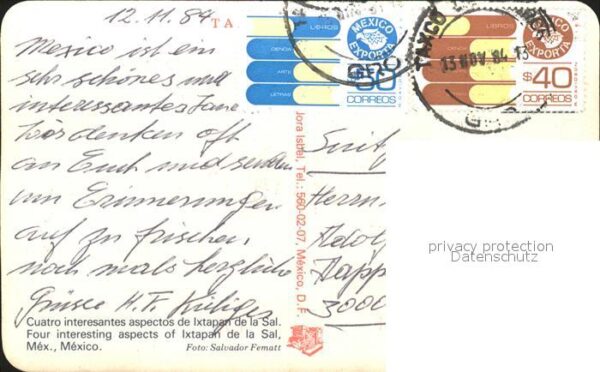 12.11.84
T A
Mexico ist ein
sehr schönes und
interessantes Land
Wir denken oft
an Euch und senden
um Erinnerungen
auf zu frischen
noch mals herzliche
Grüsse H. F.
Cuatro interesantes aspectos de Ixtapan de la Sal.
Four interesting aspects of Ixtapan de la Sal,
Méx., México.
Foto: Salvador Fematt
Jora Isbel, Tel.: 560-02-07, México, D. F.
LIBROS
CIENCIA
ARTE
LETRAS
MEXICO
EXPORTA
CORREOS
LIBROS
MEXICO
EXPORTA
$40
CORREOS
TAXCO
13 NOV 84 13
GRO
Herrn
Adolf
3000
privacy protection
Datenschutz